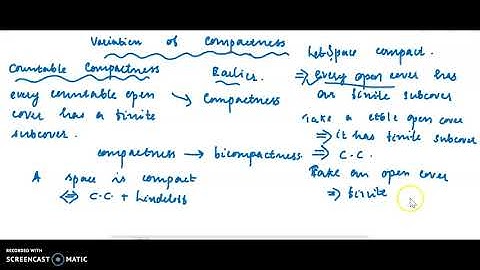 Variation of Compactness
Countable Compactness
every countable open
cover has a finite
subcover.
Earlier.
→ Compactness
compactness → bicompactness
A space is compact
⇔ C.C + Lindeloff
Let Space compact.
⇒ every open cover has
an finite subcover
Take a ctble open cover
⇒ it has finite subcover
⇒ C.C.
Take an open cover
⇒ finite
RECORDED WITH
SCREENCAST-O-MATIC